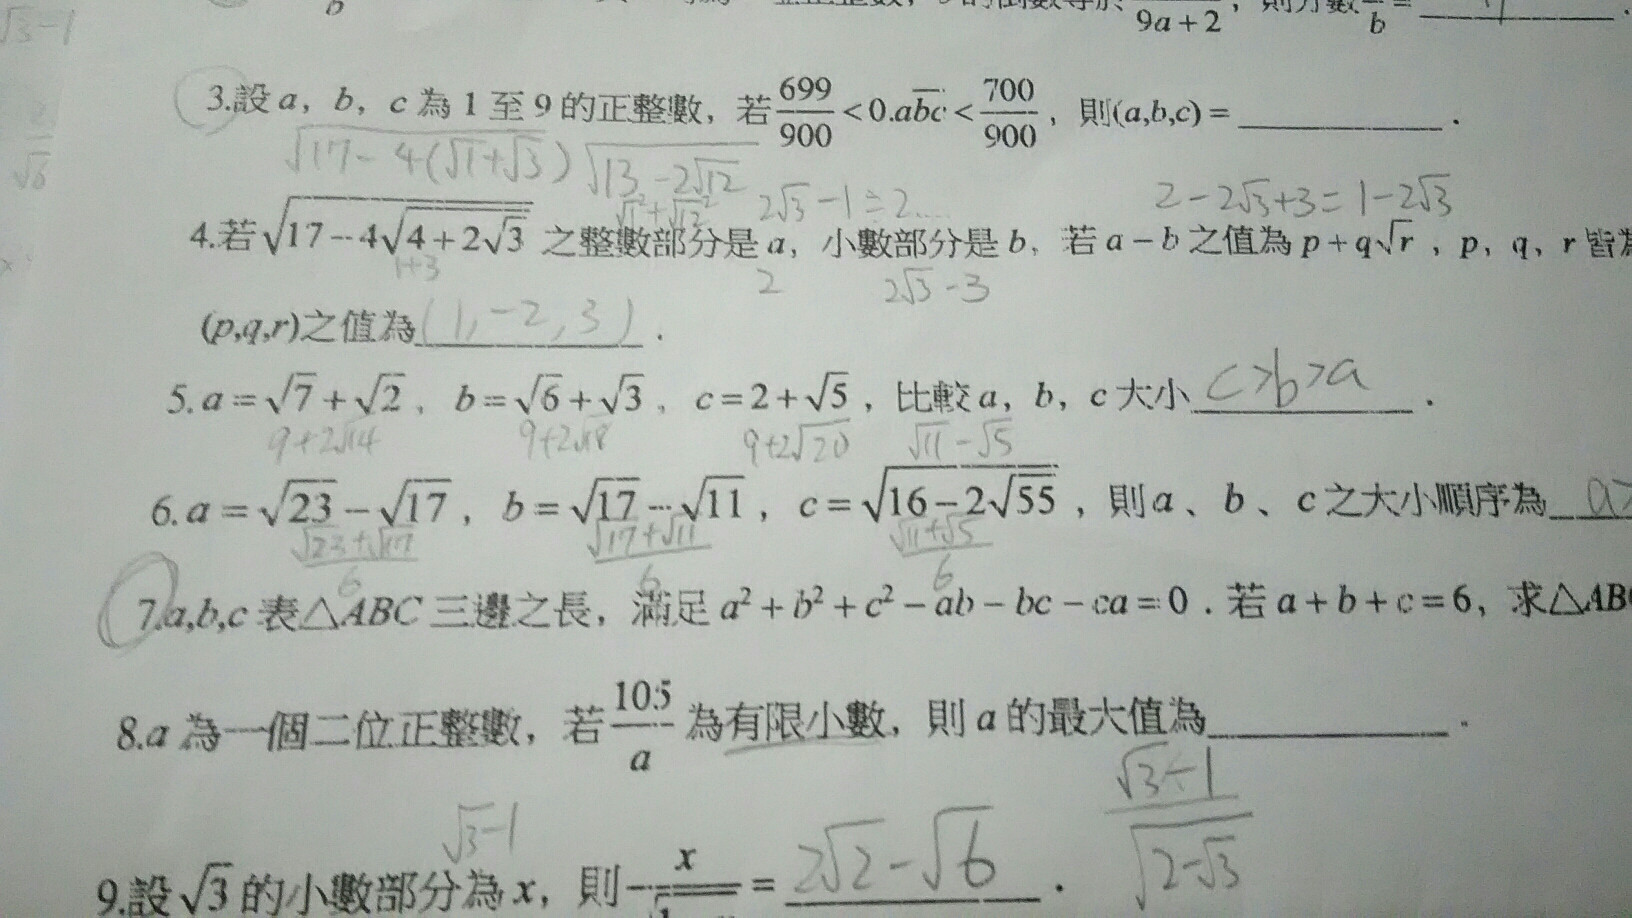 9a+2 , 則分數 /b = ______ .
√3-1
3.設 a, b, c 為 1 至 9 的正整數, 若 699/900 < 0.a\overline{bc} < 700/900 , 則(a,b,c) = ______ .
√(17-4(√1+√3)) √(13-2√12)
√1²+√12² 2√3-1≒2.... 2-2√3+3=1-2√3
4.若 √(17-4√(4+2√3)) 之整數部分是 a, 小數部分是 b, 若 a-b 之值為 p+q√r , p, q, r 皆
1+3 2 2√3-3
(p,q,r)之值為 (1,-2,3) .
5. a=√7+√2 , b=√6+√3 , c=2+√5 , 比較 a, b, c 大小 c>b>a .
9+2√14 9+2√18 9+2√20 √11-√5
6. a=√23-√17 , b=√17-√11 , c=√(16-2√55) , 則 a、b、c 之大小順序為 a>
√23+√17/6 √17+√11/6 √11+√5/6
7.a,b,c 表△ABC 三邊之長, 滿足 a²+b²+c²-ab-bc-ca=0 . 若 a+b+c=6, 求△AB
8.a 為一個二位正整數, 若 105/a 為有限小數, 則 a 的最大值為______ .
√3-1 √3-1/√(2-√3)
9.設 √3 的小數部分為 x, 則 x = 2√2-√6 .